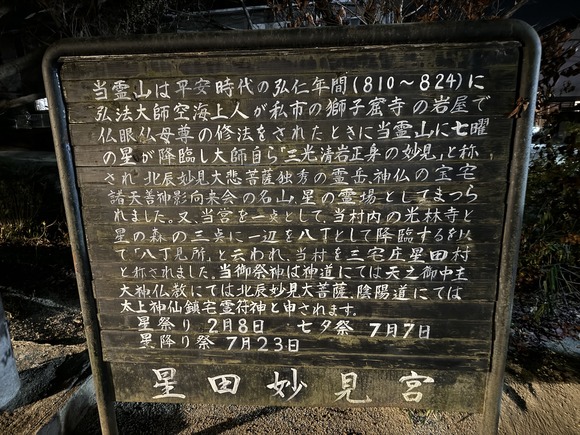 当霊山は平安時代の弘仁年間(810～824)に
弘法大師空海上人が私市の獅子窟寺の岩屋で
仏眼仏母尊の修法をされたときに当霊山に七曜
の星が降臨し大師自ら「三光清岩正身の妙見」と称
され、北辰妙見大悲菩薩独秀の霊岳、神仏の宝宅
諸天善神影向来会の名山、星の霊場としてまつら
れました。又、当宮を一点として、当村内の光林寺と
星の森の三点に一辺を八丁として降臨するを以
て「八丁見所」と云われ、当村を三宅庄星田村
と称されました。当御祭神は神道にては天之御中主
大神仏教にては北辰妙見大菩薩、陰陽道にては
太上神仙鎮宅霊符神と申されます。
星祭り 2月8日 七夕祭 7月7日
星降り祭 7月23日
星田妙見宮